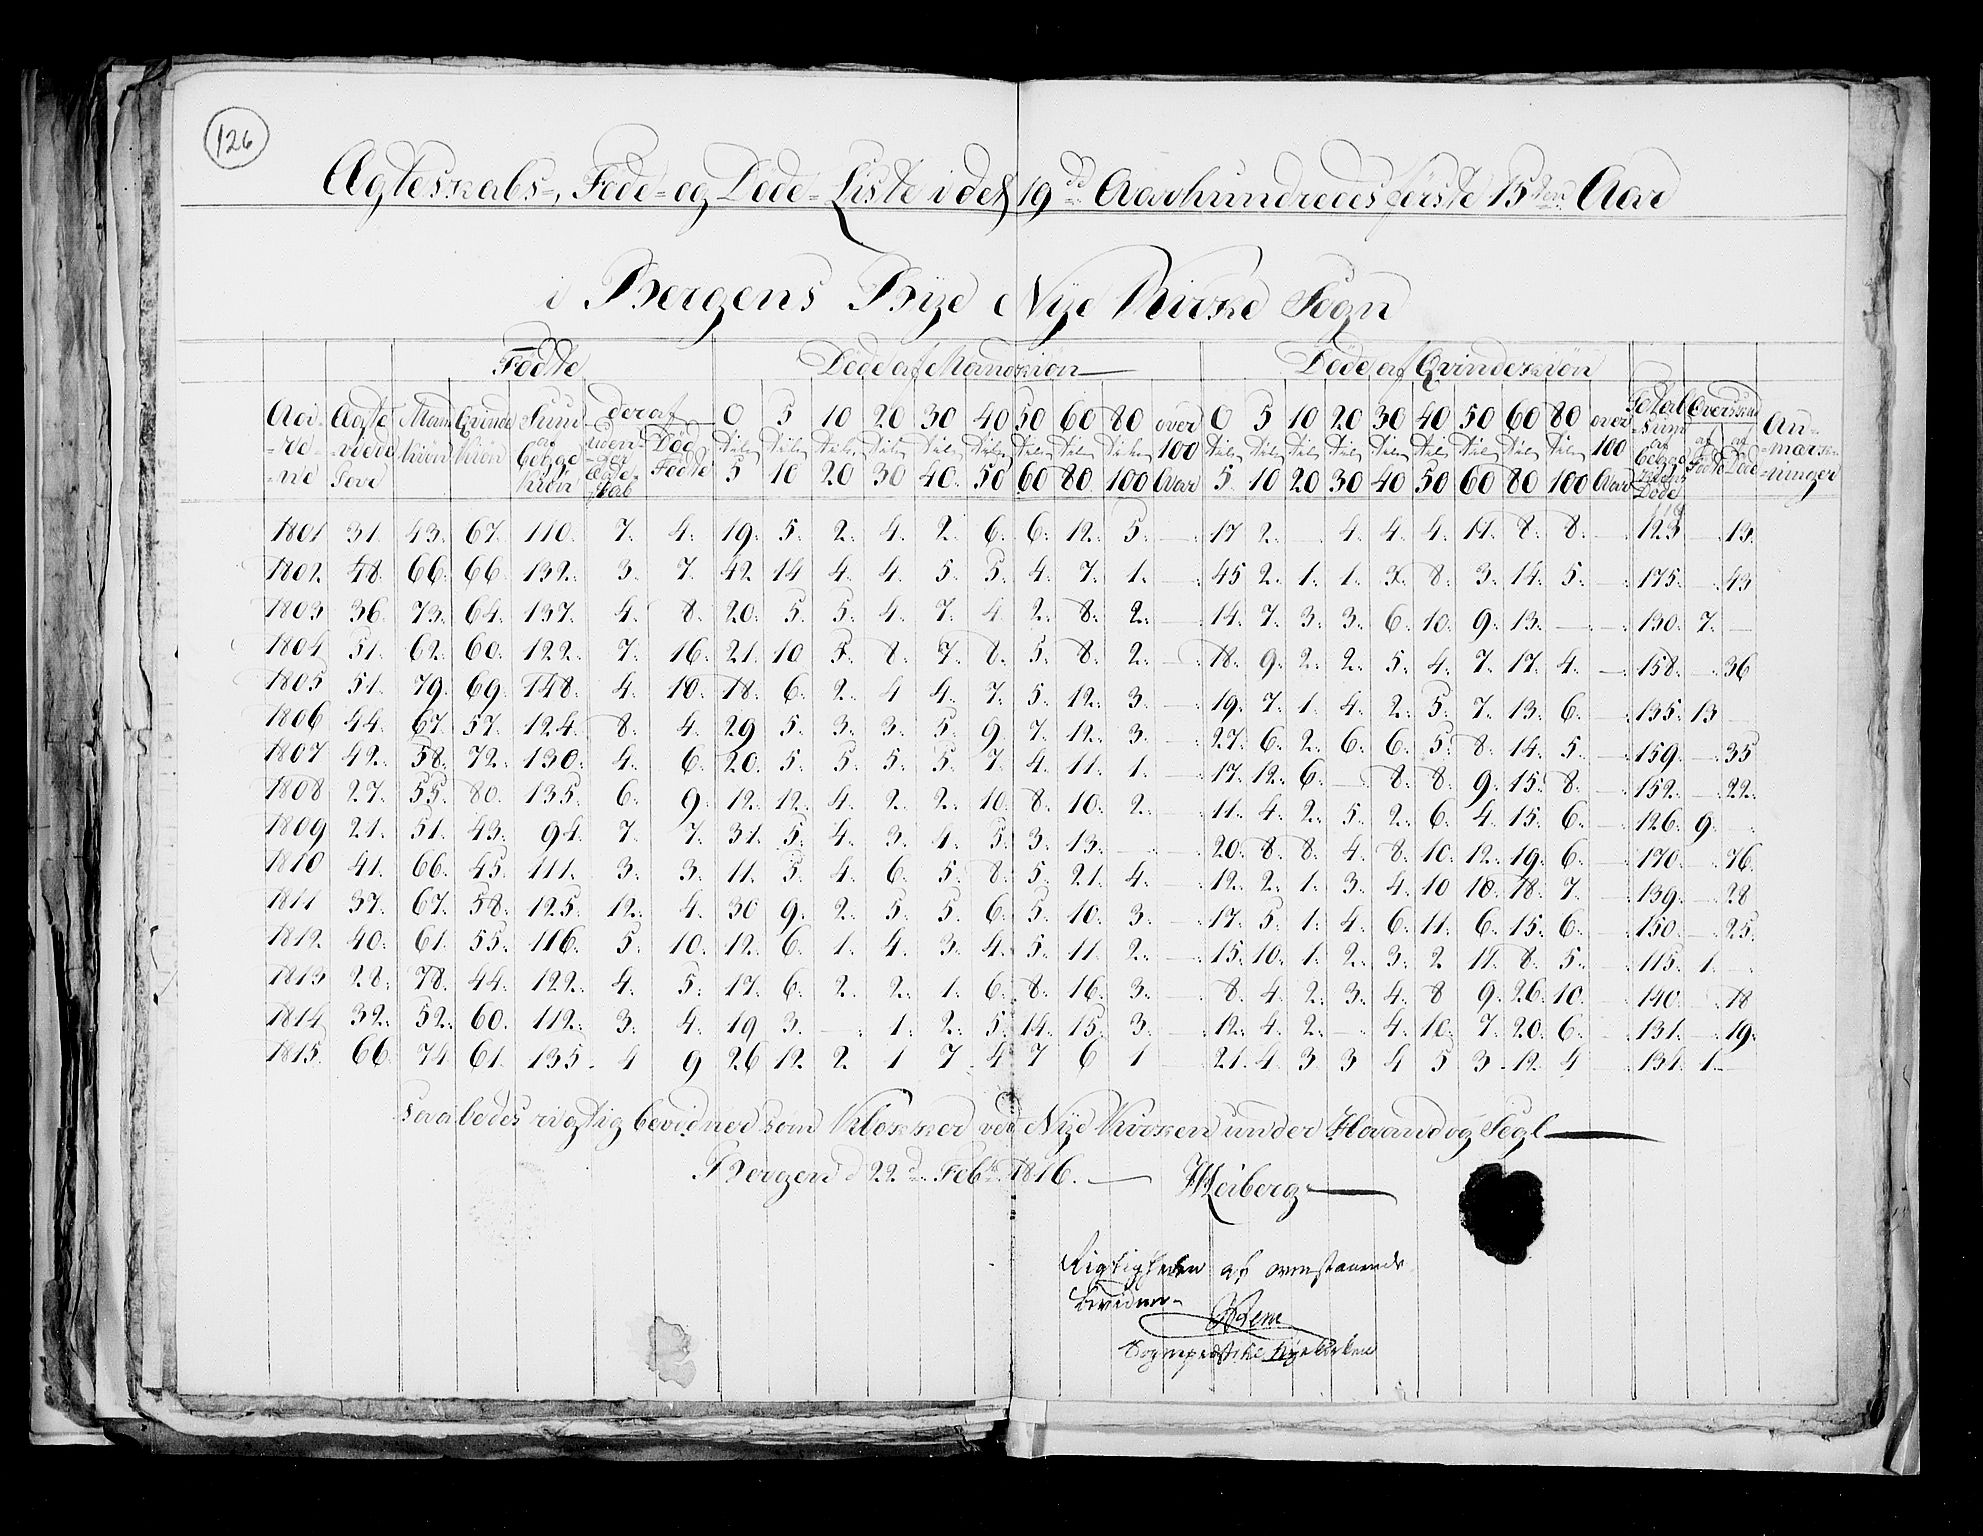 126
Ægteskabs-, Føde- og Døde-Liste i det 19de Aarhundredes første 15ten Aar
i Bergens Bye Nye Kirke Sogn
Fødte Døde af Mandkiøn Døde af Qvindekiøn
Aa-re-ne Ægte-viede Parr Mand kiøn Qvinde kiøn Sum af begge kiøn deraf Uden for Ægte-skab Død Fødte 0 til 5 5 til 10 10 til 20 20 til 30 30 til 40 40 til 50 50 til 60 60 til 80 80 til 100 over 100 Aar 0 til 5 5 til 10 10 til 20 20 til 30 30 til 40 40 til 50 50 til 60 60 til 80 80 til 100 over 100 Aar Total Sum af begge kiøns Døde Overskud af Fødte af Døde An-mærk-ninger
1801 31. 43. 67. 110. 7. 4. 19. 5. 2. 4. 2. 6. 6. 12. 5. — 17 2. — 4. 4. 4. 11. 8. 8. — 123 — 13.
1802 48. 66. 66. 132. 3. 7. 42 14 4. 4. 5. 5. 4. 7. 1. — 45 2. 1. 1. 3. 8. 3. 14. 5. — 175. — 43
1803 36. 73. 64. 137. 4. 8. 20. 5. 5. 4. 7. 4 2. 8. 2. — 14. 7. 3. 3. 6. 10. 9. 13. — — 130. 7. —
1804 51. 62. 60. 122. 7. 16. 21. 10 5. 8. 7. 8. 5. 8. 2. — 18. 9. 2. 2. 5. 4. 7. 17. 4. — 158. — 36
1805 51. 79. 69. 148. 4. 10. 18. 6. 2. 4 4. 7. 5. 12. 3. — 19. 7. 1. 4. 2. 5. 7. 13. 6. — 135. 13 —
1806 44. 67. 57. 124. 8. 4. 29 5. 3. 3. 5. 9. 7. 12. 3. — 27. 6. 2. 6. 6. 5. 8. 14. 5. — 159. — 35
1807 42. 58. 72. 130. 4. 6. 20. 5. 5. 5. 5. 7. 4. 11. 1. — 17. 12. 6. — 8. 8. 9. 15. 8. — 152. — 22.
1808 27. 55. 80. 135. 6. 9. 12. 12. 4. 2. 2. 10. 8. 10. 2. — 11. 4. 2. 5. 2. 6. 4. 15. 6. — 126. 9. —
1809 21. 51. 43. 94. 7. 7. 31. 5. 4. 3. 4. 5. 3. 13. — — 20. 8. 8. 4. 8. 10. 12. 19. 6. — 170. — 76.
1810 41. 66. 45. 111. 3. 3. 11. 5. 4. 6. 5. 8. 5. 21. 4. — 12. 2. 1. 3. 4. 10 10. 18. 7. — 139. — 28
1811 37. 67. 58. 125. 12. 4. 30 9. 2. 5. 5. 6. 5. 10. 3. — 17. 5. 1. 4. 6. 11. 6. 15. 6. — 150. — 25.
1812 40. 61. 55. 116. 5. 10. 12. 6. 1. 4. 3. 4. 5. 11. 2. — 15. 10. 1. 2. 3. 2 11. 8. 5. — 115. 1. —
1813 28. 78. 44. 122. 4. 5. 17. 6. 2. 2. 1. 6. 8. 16. 3. — 8. 4. 2. 3. 4. 8 9. 26. 10. — 140. — 18
1814 32. 52. 60. 112. 3. 4. 19 3. — 1. 2. 5. 14. 15. 3. — 12. 4. 2. — 4. 10. 7. 20. 6. — 131. — 19.
1815. 66. 74 61. 135. 4 9 26 12. 2. 1 7 4 7 6 1 — 21. 4 3 3 4 5 3. 12. 4 — 134. 1. —
saaledes rigtig bevidner som Klokker ved Nye Kirken under Haand og Segl
Bergen d 22d. Febr. 1816. — Heiberg
Rigtigheden af ovenstaaende
bevidner
Sognepræst til Nye Kirken